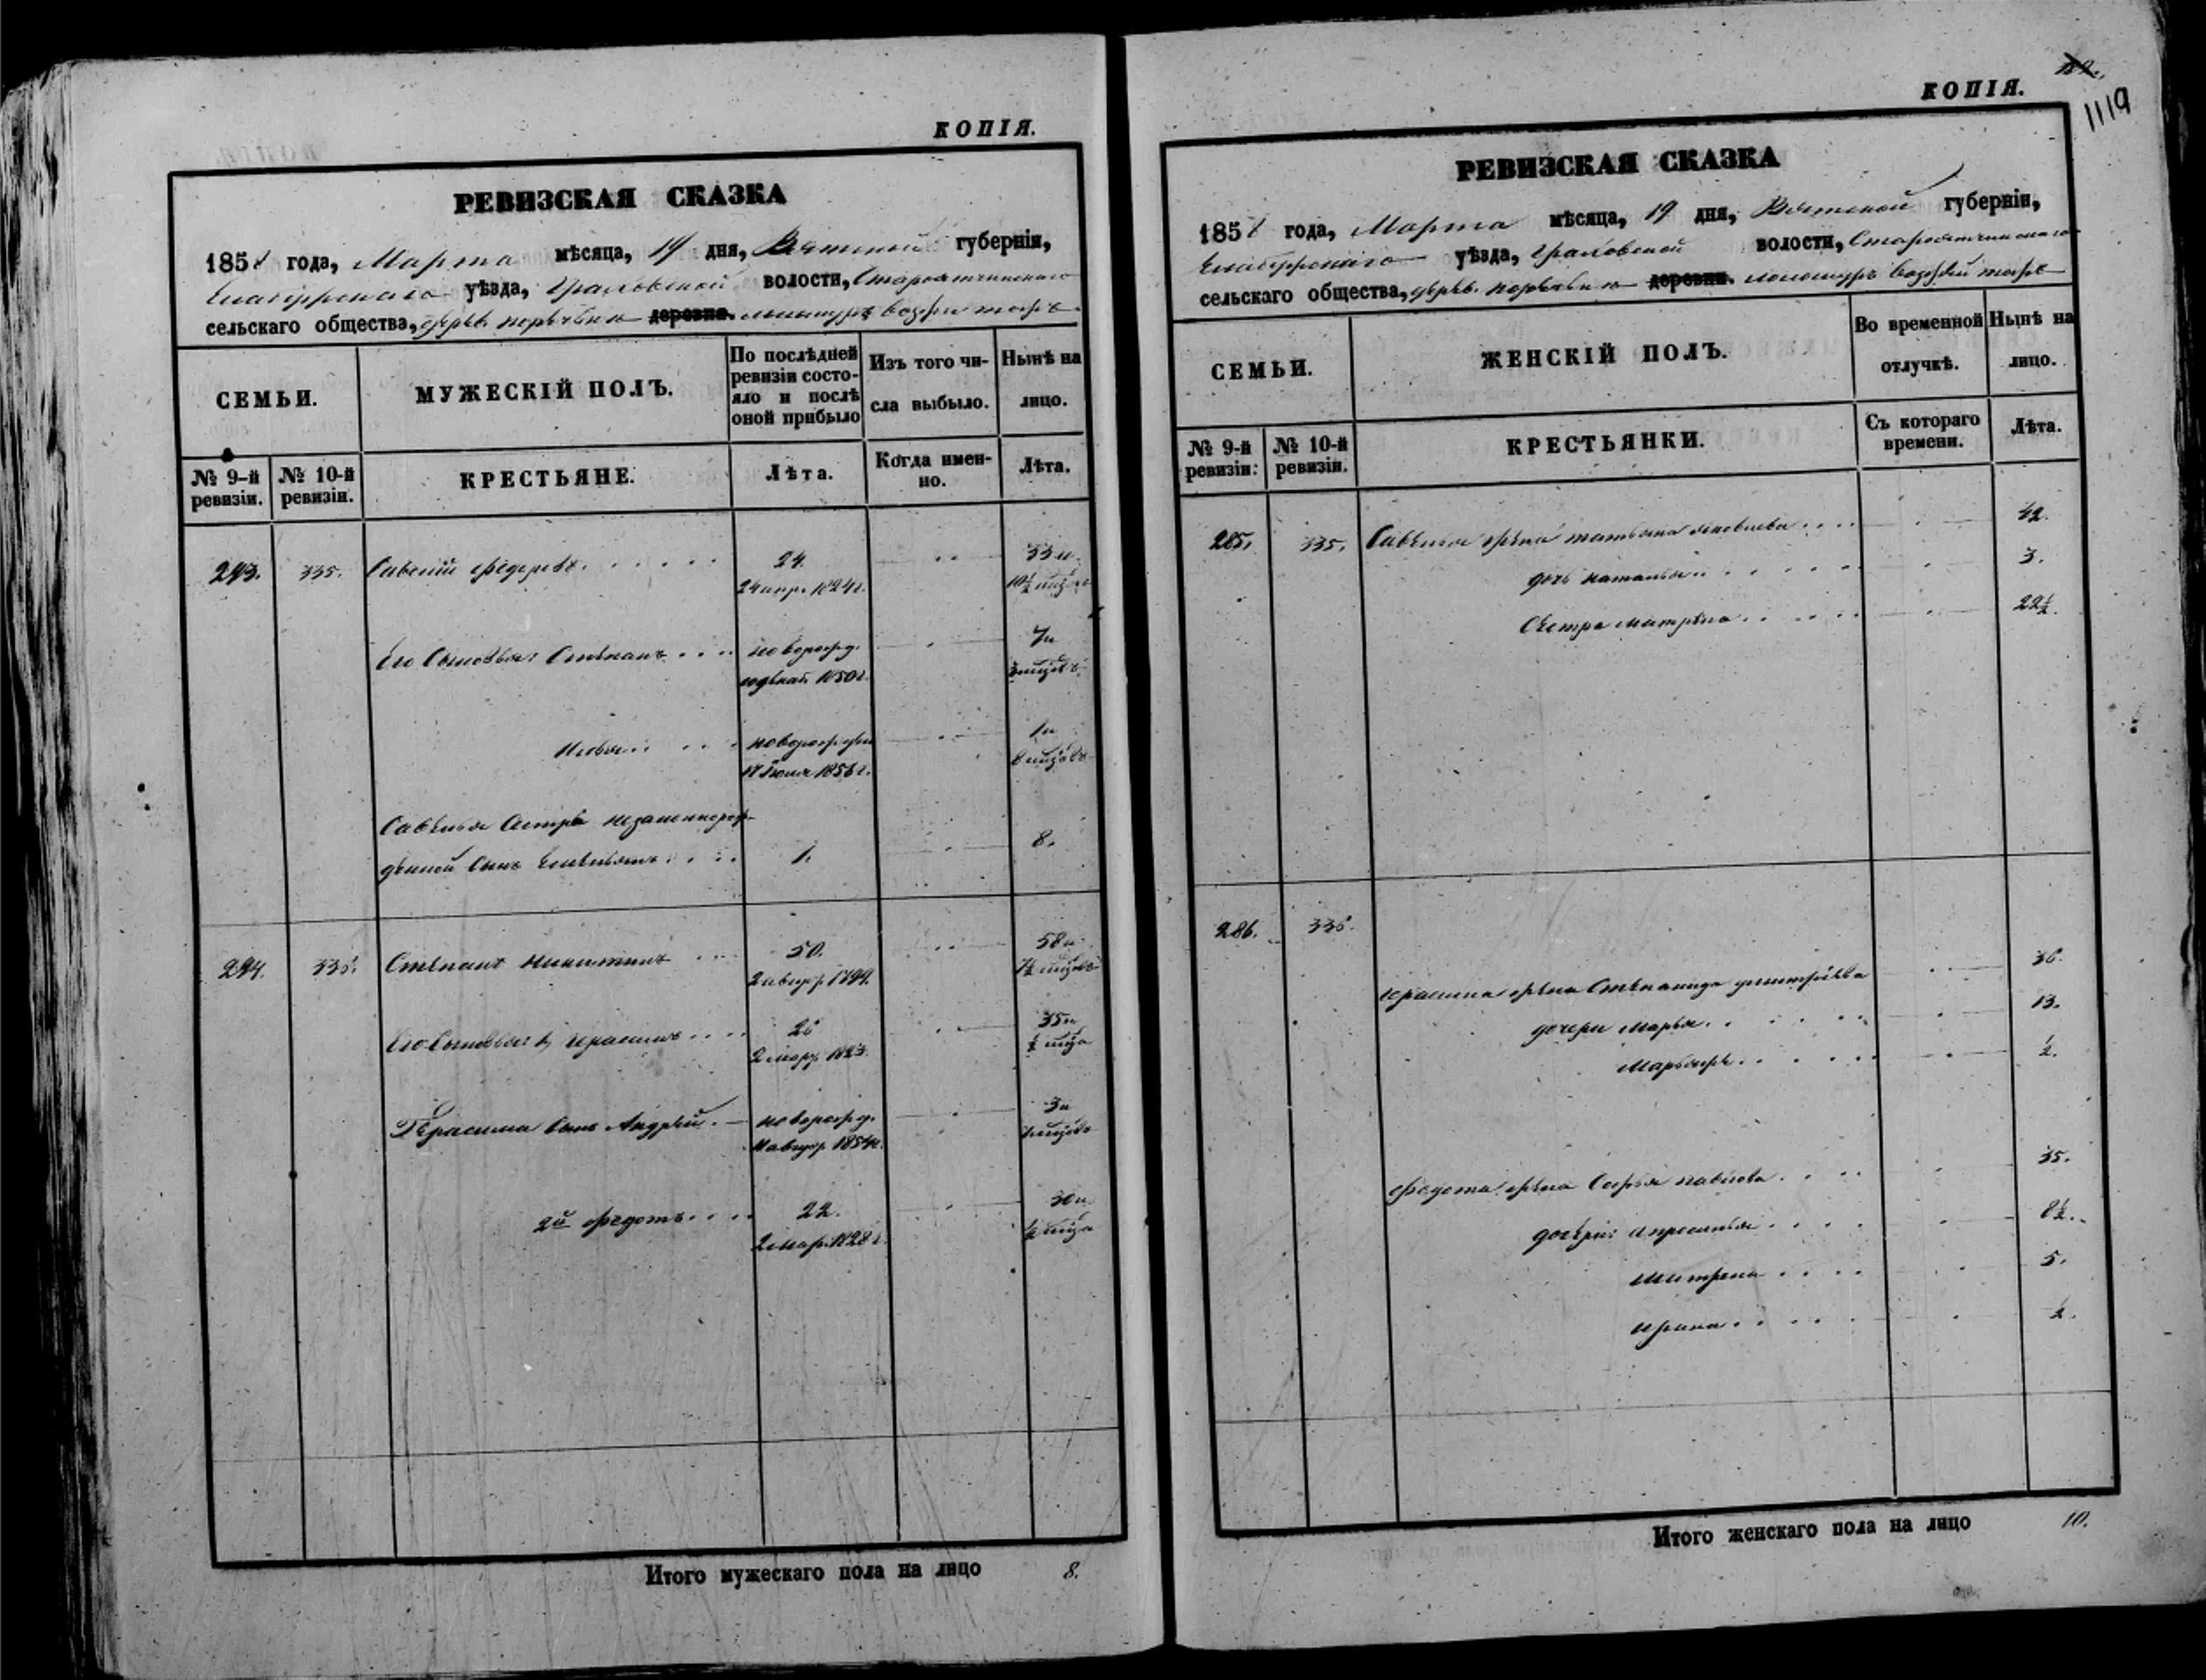 КОПІЯ.
РЕВИЗСКАЯ СКАЗКА
185 года, Марта мѣсяца, 19 дня, Вятской губерніи,
Елабужскаго уѣзда, Граховской волости, Староятчинскаго
сельскаго общества, дерев.
СЕМЬИ.
МУЖЕСКІЙ ПОЛЪ.
По послѣдней ревизіи состояло и послѣ оной прибыло
Изъ того числа выбыло.
Нынѣ на лицо.
№ 9-й ревизіи.
№ 10-й ревизіи.
КРЕСТЬЯНЕ.
Лѣта.
Когда именно.
Лѣта.
293. 335. Савелій Федоровъ 24. 33 и
24 апр. 1824 г. 10½ мѣсяцевъ
Его Сыновья: Степанъ новорожд. 7 и
1850 г.
Илья новорожден 1 и
17 Іюля 1856 г. 8 мѣсяцевъ
Савелья Сестры незаконнорож-
денной Сынъ Емельянъ 1. 8.
294. 336. Степанъ Никитинъ 50. 58 и
1799. 7½ мѣсяцевъ
Его Сыновья: 1, Герасимъ 26 35 и
2 мар. 1823. ½ мѣсяца
Герасима Сынъ Андрей новорожд. 3 и
1854 г.
2й Федотъ 22. 30 и
2 мар. 1828 г. ½ мѣсяца
Итого мужескаго пола на лицо 8.
КОПІЯ.
1119
РЕВИЗСКАЯ СКАЗКА
185 года, Марта мѣсяца, 19 дня, Вятской губерніи,
Елабужскаго уѣзда, Граховской волости, Староятчинскаго
сельскаго общества, дерев.
СЕМЬИ.
ЖЕНСКІЙ ПОЛЪ.
Во временной отлучкѣ.
Нынѣ на лицо.
№ 9-й ревизіи.
№ 10-й ревизіи.
КРЕСТЬЯНКИ.
Съ котораго времени.
Лѣта.
285. 335. Савелья жена Татьяна Яковлева 42.
дочь Наталья 3.
Сестра Матрена 22½.
286. 336.
Герасима жена Степанида Дмитріева 36.
дочери Марья 13.
Марфа ½.
Федота жена Софья Павлова 35.
дочери: Апросинья 8½.
Матрена 5.
Ирина ½.
Итого женскаго пола на лицо 10.